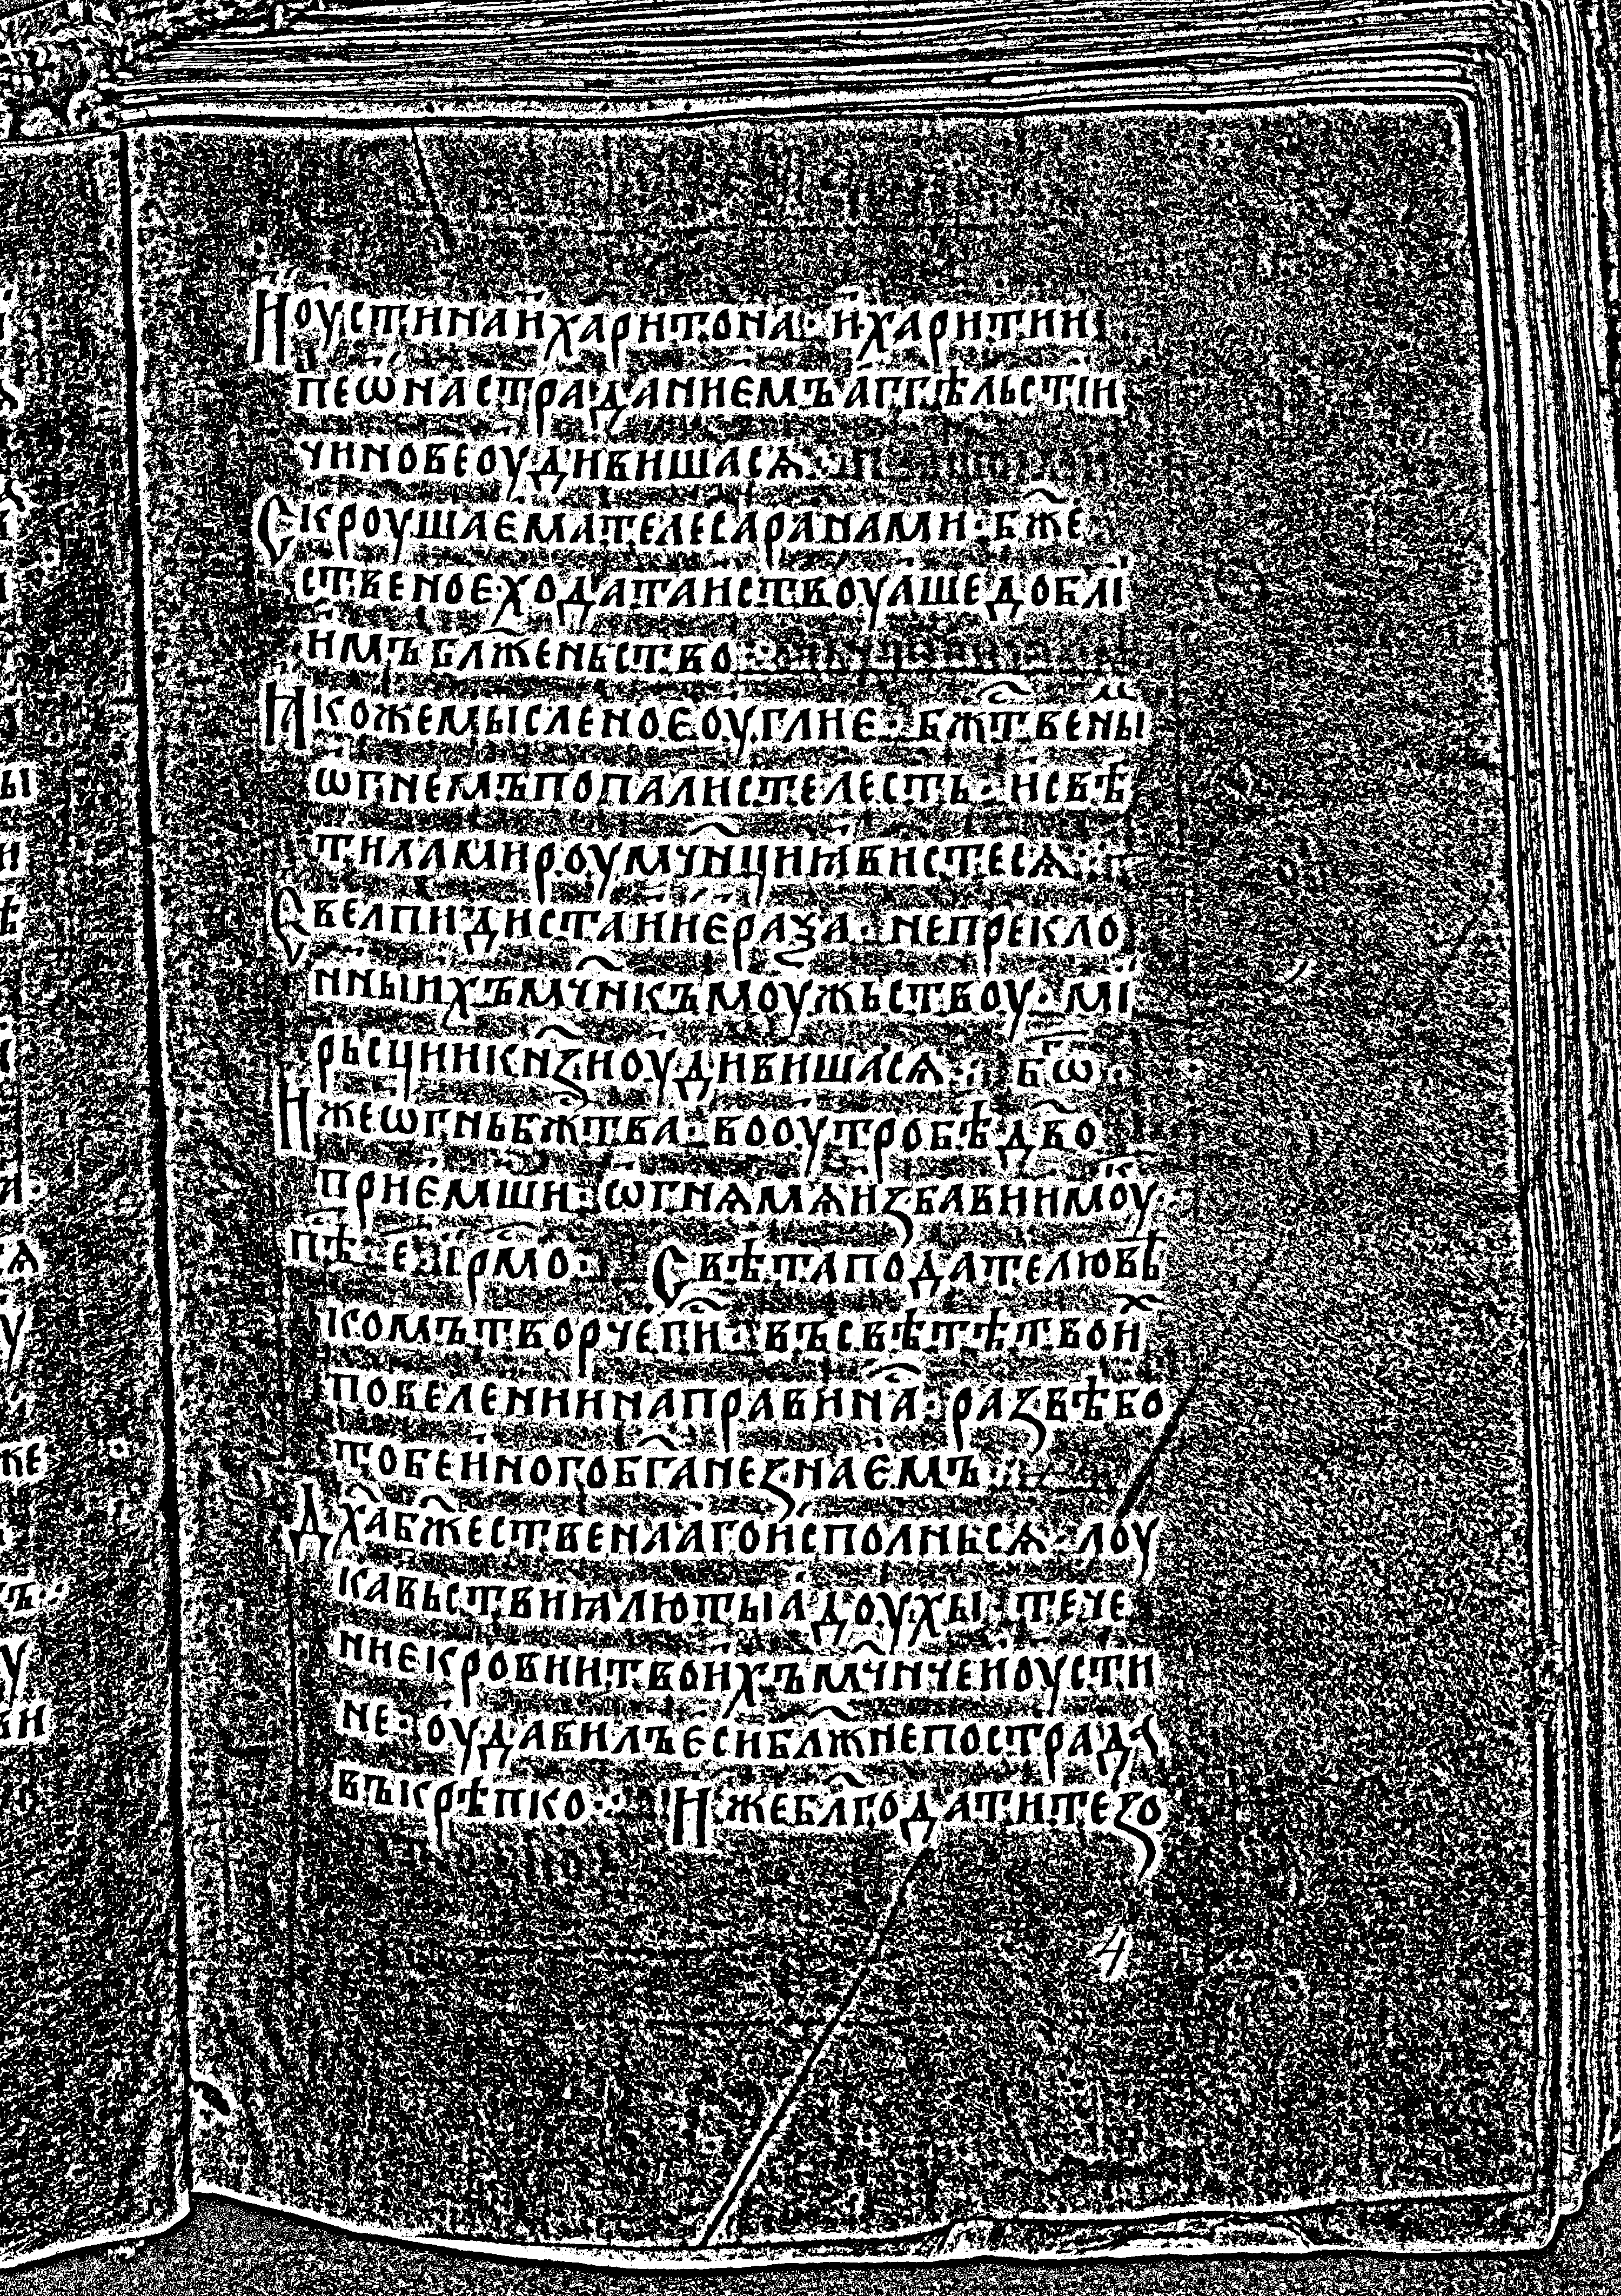 Иоустина и харитона · и харити и
пеѡна страданиемъ аггѣльстіи
чинове оудивишасѧ ·
Скроушаема телеса ранами · бж҃е
ственое ходатаиствоуаше доблі
имъ блж҃еньство ·
Ꙗкоже мысленое оуглие · бж҃твены
ѡгнемъ попалисте лесть · и свѣ
тила мироу мч҃нци ꙗвистесѧ ·
Свелпидистание раꙁа · непрекло
нныихъ мч҃нкъ моужьствоу · мі
рьсции кнꙁ҃и оудивишасѧ · бг҃ѡ ·
Иже ѡгнь бж҃тва · во оутробѣ дв҃о
приемши · ѡгнѧ мѧ иꙁбави и моук
пѣ · е · ірмо · Свѣта подателю вѣ
комъ творче ги҃ · въ свѣтѣ твоих
повелении направи на҃ · раꙁвѣ бо
тобе иного бг҃а не ꙁнаемъ ·
Дх҃а бж҃ественааго исполньсѧ · лоу
кавьствиꙗ лютыа доухы · тече
ние крови и твоихъ мч҃нче иоусти
не · оудавилъ еси блж҃не пострада
въ крѣпко · Иже блг҃одати теꙁо
4